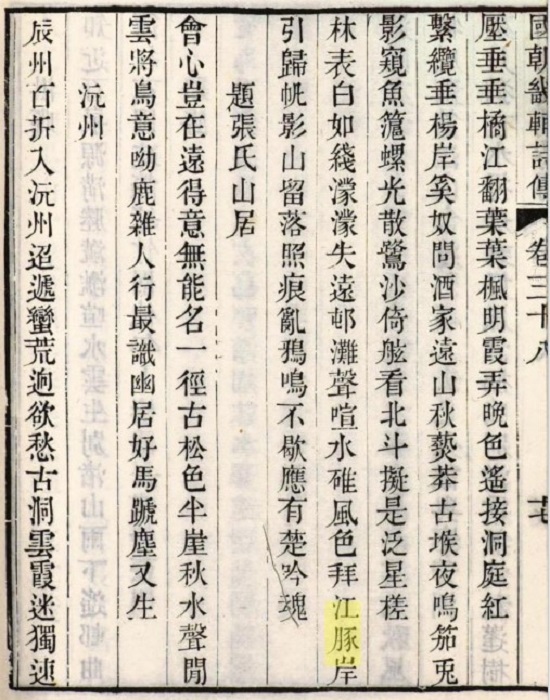 國朝畿輔詩傳 卷三十八
壓垂垂橘江翻葉葉楓明霞弄晚色遙接洞庭紅
繫纜垂楊岸奚奴問酒家遠山秋爇莽古堠夜鳴笳兎
影窺魚籠螺光散鷺沙倚舷看北斗擬是泛星槎
林表白如綫濛濛失遠邨灘聲喧水碓風色拜江豚岸
引歸帆影山留落照痕亂鴉鳴不歇應有楚吟魂
題張氏山居
會心豈在遠得意無能名一徑古松色半崖秋水聲閒
雲將鳥意呦鹿雜人行最識幽居好馬蹏塵又生
沅州
辰州百折入沅州迢遞蠻荒逈欲愁古洞雲霞迷獨速